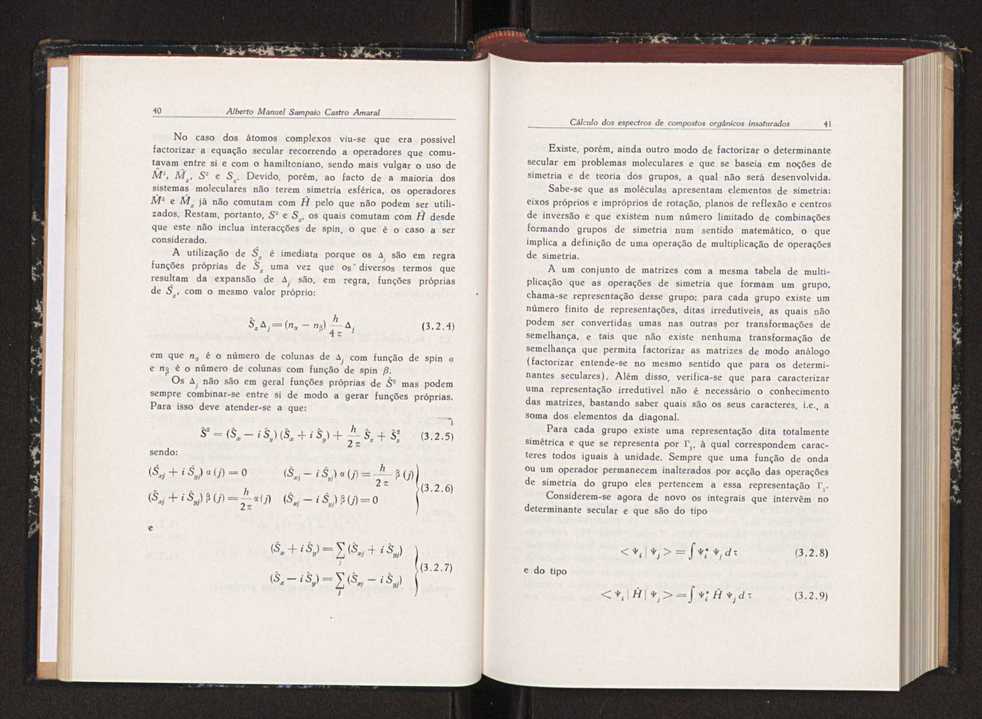 40 Alberto Manuel Sampaio Castro Amaral
No caso dos átomos complexos viu-se que era possível
factorizar a equação secular recorrendo a operadores que comu-
tavam entre si e com o hamiltoniano, sendo mais vulgar o uso de
M̂², M̂z, S² e Sz. Devido, porém, ao facto de a maioria dos
sistemas moleculares não terem simetria esférica, os operadores
M̂² e M̂z já não comutam com Ĥ pelo que não podem ser utili-
zados, Restam, portanto, S² e Sz, os quais comutam com Ĥ desde
que este não inclua interacções de spin, o que é o caso a ser
considerado.
A utilização de Ŝz é imediata porque os Δj são em regra
funções próprias de Ŝz uma vez que os diversos termos que
resultam da expansão de Δj são, em regra, funções próprias
de Ŝz, com o mesmo valor próprio:
Ŝz Δj = (nα − nβ) h/4π Δj (3.2.4)
em que nα é o número de colunas de Δj com função de spin α
e nβ é o número de colunas com função de spin β.
Os Δj não são em geral funções próprias de Ŝ² mas podem
sempre combinar-se entre si de modo a gerar funções próprias.
Para isso deve atender-se a que:
Ŝ² = (Ŝx − i Ŝy) (Ŝx + i Ŝy) + h/2π Ŝz + Ŝz² (3.2.5)
sendo:
(Ŝxj + i Ŝyj) α (j) = 0 (Ŝxj − i Ŝyj) α (j) = h/2π β (j)
(Ŝxj + i Ŝyj) β (j) = h/2π α (j) (Ŝxj − i Ŝyj) β (j) = 0 (3.2.6)
e
(Ŝx + i Ŝy) = ∑j (Ŝxj + i Ŝyj)
(Ŝx − i Ŝy) = ∑j (Ŝxj − i Ŝyj) (3.2.7)
Cálculo dos espectros de compostos orgânicos insaturados 41
Existe, porém, ainda outro modo de factorizar o determinante
secular em problemas moleculares e que se baseia em noções de
simetria e de teoria dos grupos, a qual não será desenvolvida.
Sabe-se que as moléculas apresentam elementos de simetria:
eixos próprios e impróprios de rotação, planos de reflexão e centros
de inversão e que existem num número limitado de combinações
formando grupos de simetria num sentido matemático, o que
implica a definição de uma operação de multiplicação de operações
de simetria.
A um conjunto de matrizes com a mesma tabela de multi-
plicação que as operações de simetria que formam um grupo,
chama-se representação desse grupo; para cada grupo existe um
número finito de representações, ditas irredutíveis, as quais não
podem ser convertidas umas nas outras por transformações de
semelhança, e tais que não existe nenhuma transformação de
semelhança que permita factorizar as matrizes de modo análogo
(factorizar entende-se no mesmo sentido que para os determi-
nantes seculares). Além disso, verifica-se que para caracterizar
uma representação irredutível não é necessário o conhecimento
das matrizes, bastando saber quais são os seus caracteres, i.e., a
soma dos elementos da diagonal.
Para cada grupo existe uma representação dita totalmente
simétrica e que se representa por Γ₁, à qual correspondem carac-
teres todos iguais à unidade. Sempre que uma função de onda
ou um operador permanecem inalterados por acção das operações
de simetria do grupo eles pertencem a essa representação Γ₁.
Considerem-se agora de novo os integrais que intervêm no
determinante secular e que são do tipo
< Ψi | Ψj > = ∫ Ψi* Ψj d τ (3.2.8)
e do tipo
< Ψi | Ĥ | Ψj > = ∫ Ψi* Ĥ Ψj d τ (3.2.9)